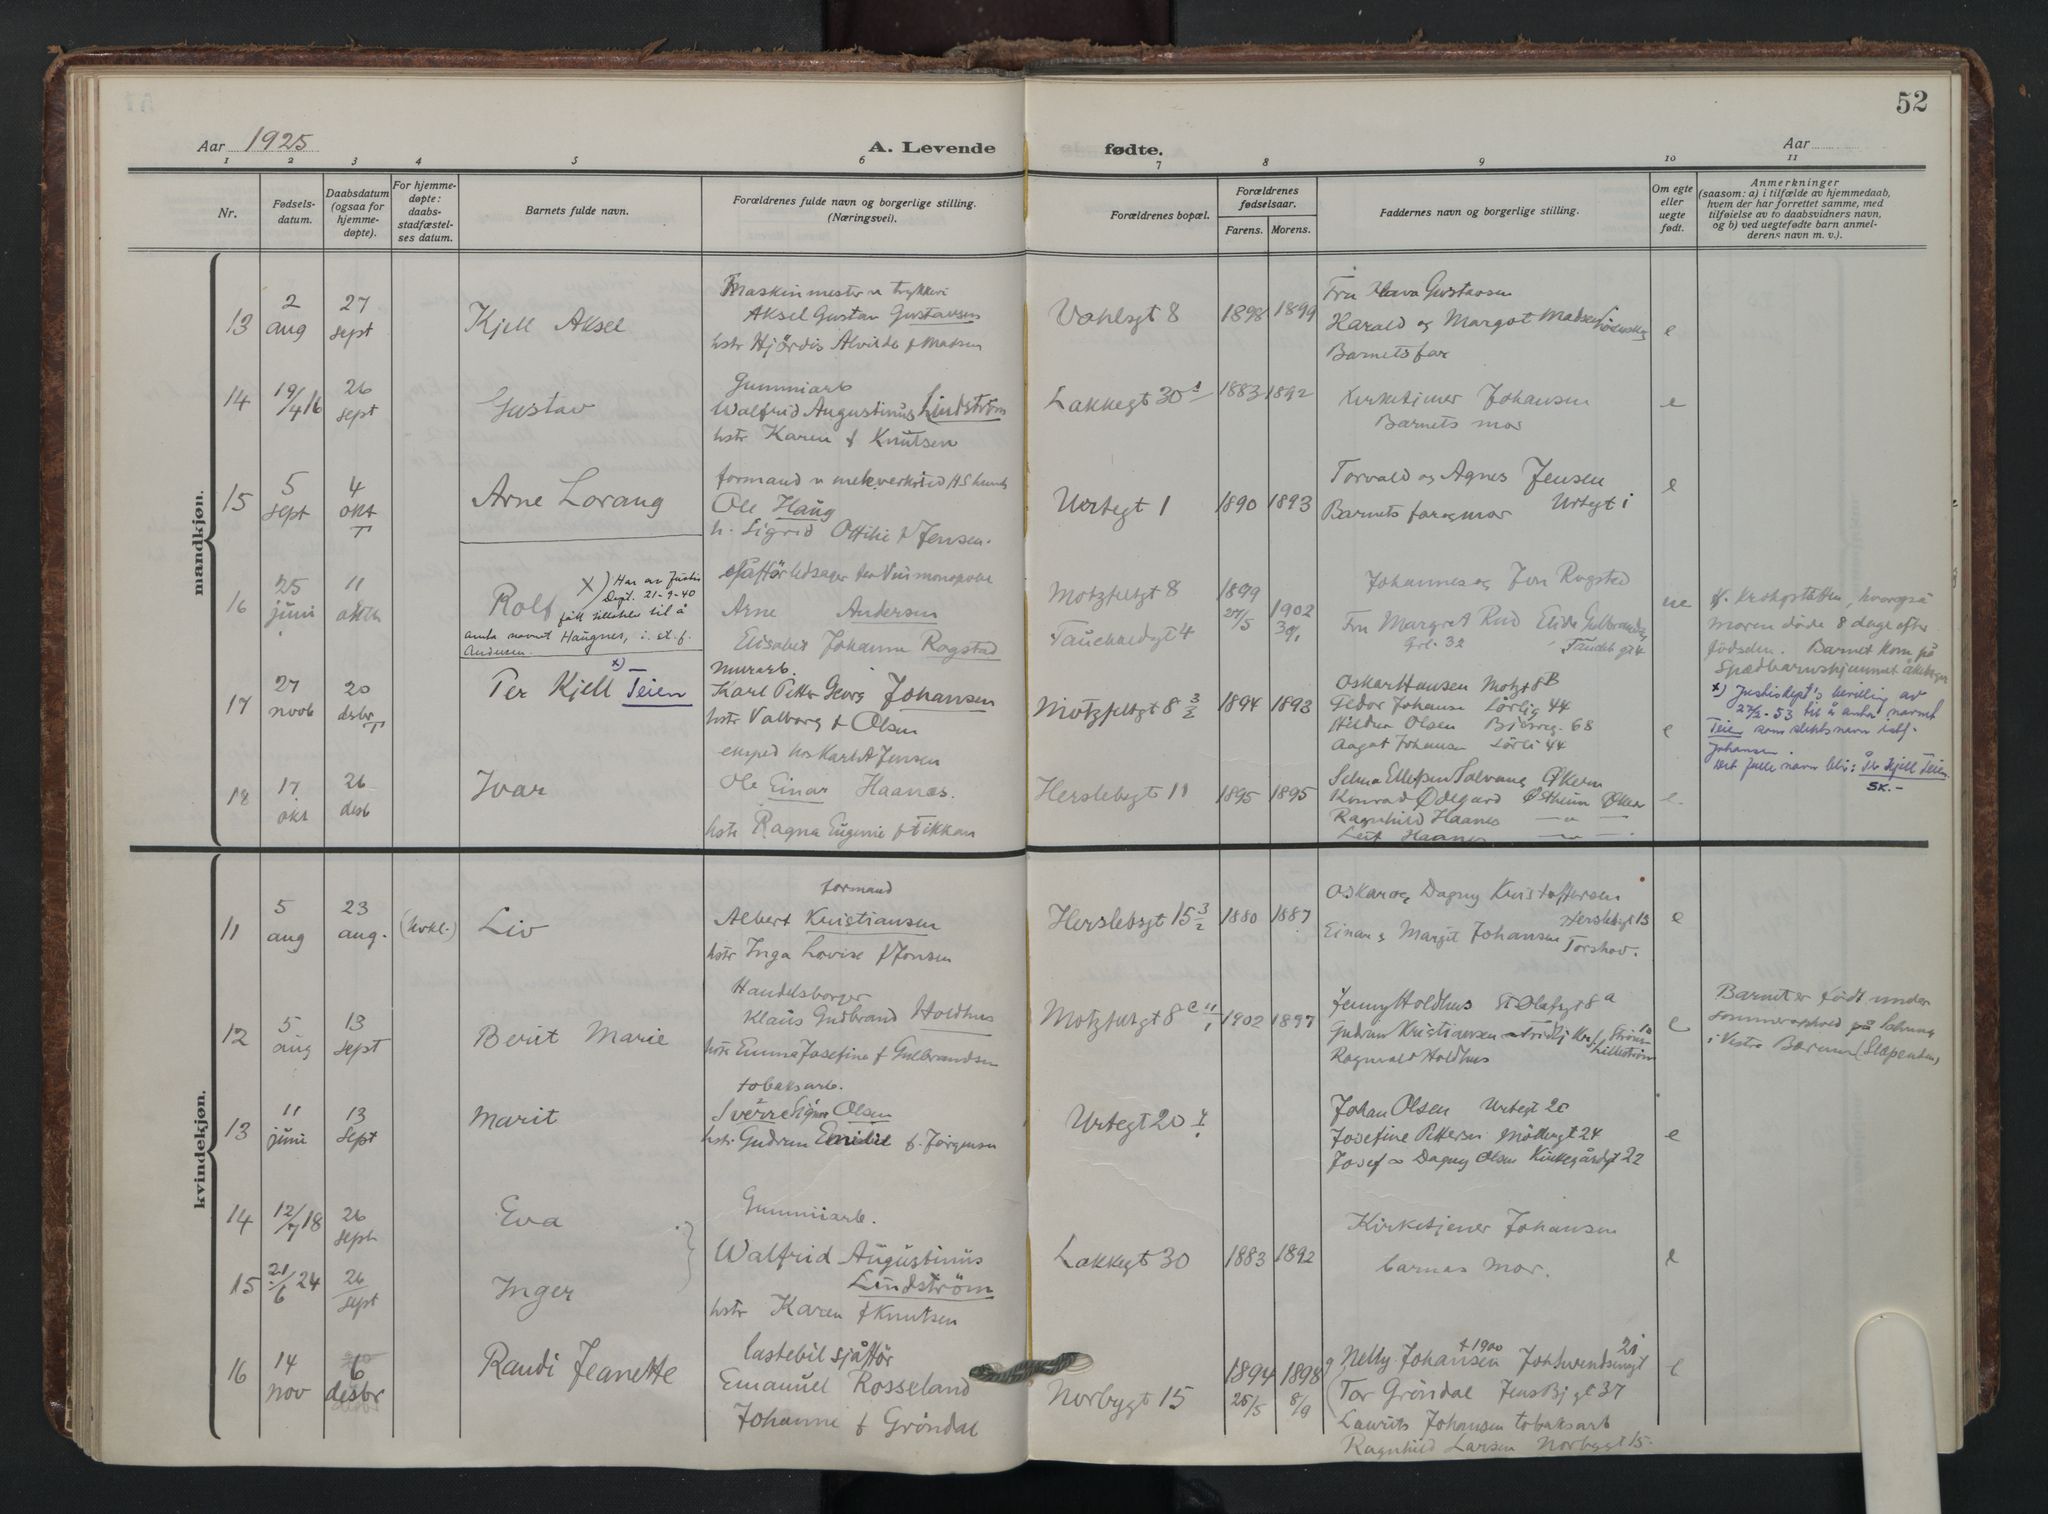 52
Aar 1925
A. Levende fødte.
Aar
1 2 3 4 5 6 7 8 9 10 11
Nr.
Fødsels-
datum.
Daabsdatum
(ogsaa for
hjemme-
døpte).
For hjemme-
døpte:
daabs-
stadfæstel-
ses datum.
Barnets fulde navn.
Forældrenes fulde navn og borgerlige stilling.
(Næringsvei).
Forældrenes bopæl.
Forældrenes
fødselsaar.
Farens. Morens.
Faddernes navn og borgerlige stilling.
Om egte
eller
uegte
født.
Anmerkninger
(saasom: a) i tilfælde av hjemmedaab,
hvem der har forrettet samme, med
tilføielse av to daabsvidners navn,
og b) ved uegtefødte barn anmel-
derens navn m. v.).
mandkjøn.
13
2
aug
27
sept
Kjell Aksel
Maskinmester v trykkeri
Aksel Gustav Gustavsen
hstr Hjördis Alvilde f Madsen
Vahlsgt 8
1898 1899
Fru Gustavsen
Harald og Margot Madsen
Barnets far
e
14
19/4 16
26
sept
Gustav
Gummiarb
Walfrid Augustinus Lindström
hstr Karen f Knutsen
Lakkegt 30
1883 1892
Kirketjener Johansen
Barnets mor
e
15
5
sept
4
okt
Arne Lorang
formand v mek verksted
Ole Haug
h. Sigrid Ottilie f Jensen.
Urtegt 1
1890 1893
Torvald og Agnes Jensen
Urtegt 1
Barnets far og mor
e
16
25
juni
11
okt
Rolf
x) Har av Justis
Dept. 21-9-40
fått tillatelse til å
anta navnet Haugnes, i st. f.
Andersen.
Vinmonopolet
Arne Andersen
Elisabet Johanne Rogstad
Motzfeltgt 8
Tauchnedgt 4
1899
27/5
1902
Johannes og Rogstad
Fru Margret Rud
ue
hvorpå
moren døde 8 dage efter
födselen. Barnet kom på
Spædbarnshjemmet
17
27
novb
20
desbr
Per Kjell x) Teien
Murarb.
Karl Petter Georg Johansen
hstr Valborg f Olsen
Motzfeltgt 8 3/2
1894 1893
Oskar Hansen Motzgt 8 B
Johanse Lörlig 44
Hilda Olsen 68
Aagot Johansen Lörli 44
e
x) Justisdept's bevilling av
27/2-53 til å anta navnet
Teien som slektsnavn istf.
Johansen.
Det fulle navn blir: Per Kjell Teien
SK.-
18
17
okt
26
desb
Ivar
eksped hos Karl A Jensen
Ole Einar Haanes.
hstr Ragna Eugenie f Fikkan
Herslebsgt 11
1895 1895
Selma Ellefsen Solvang Økern
Konrad Ødegård Østheim Øker
Ragnhild Haanes
Leif Haanes
e
kvindekjøn.
11
5
aug
23
aug.
Liv
formand
Albert Kristiansen
hstr Inga Lovise f Jonsen
Herslebsgt 15 3/2
1880 1887
Oskar og Dagny Kristoffersen
Herslebsgt 15
Einar og Margit Johansen
Torshov.
e
12
5
aug
13
sept
Berit Marie
Handelsborger
Klaus Gudbrand Holdhus
hstr Emma Josefine f Gulbrandsen
Motzfeltgt 8 c 11/1
1902 1897
Jenny Holdhus St Olafsgt 8 a
Gudrun Kristiansen
Lilleström
Ragnvald Holdhus
e
Barnet er födt under
sommerophold på
i Vestre Bærum (Slependen)
13
11
juni
13
sept
Marit
tobaksarb.
Sverre Sigurd Olsen
hstr Gudrun Emilie f. Jörgensen
Urtegt 20
Johan Olsen Urtegt 20
Josefine Pettersen Möllergt 24
Josef og Dagny Olsen Kirkegårdsgt 22
e
14
12/7 18
26
sept
Eva
15
21/6 24
26
sept
Inger
Gummiarb.
Walfrid Augustinus
Lindström
hstr Karen f Knutsen
Lakkegt 30
1883 1892
Kirketjener Johansen
barnas mor.
e
16
14
nov
6
desbr
Randi Jeanette
lastebil sjåffør
Emanuel Rosseland
Johanne f Gröndal
Norbygt 15
1894
25/5
1898
8/9
f 1900
Nelly Johansen
Tor Gröndal Jens Bj gt 37
Laurits Johansen tobaksarb
Ragnhild Larsen Norbygt 15.
e